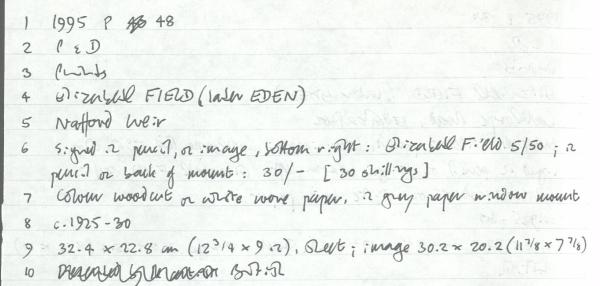 1 1995 P 48
2 P & D
3 Prints
4 Elizabeth FIELD (later EDEN)
5 Nafford Weir
6 Signed in pencil, on image, bottom right: Elizabeth Field 5/50; in
pencil on back of mount: 30/- [30 shillings]
7 Colour woodcut on white wove paper, in grey paper window mount
8 c.1925-30
9 32.4 x 22.8 cm (12 3/4 x 9 in), sheet; image 30.2 x 20.2 (11 7/8 x 7 7/8)
10 British